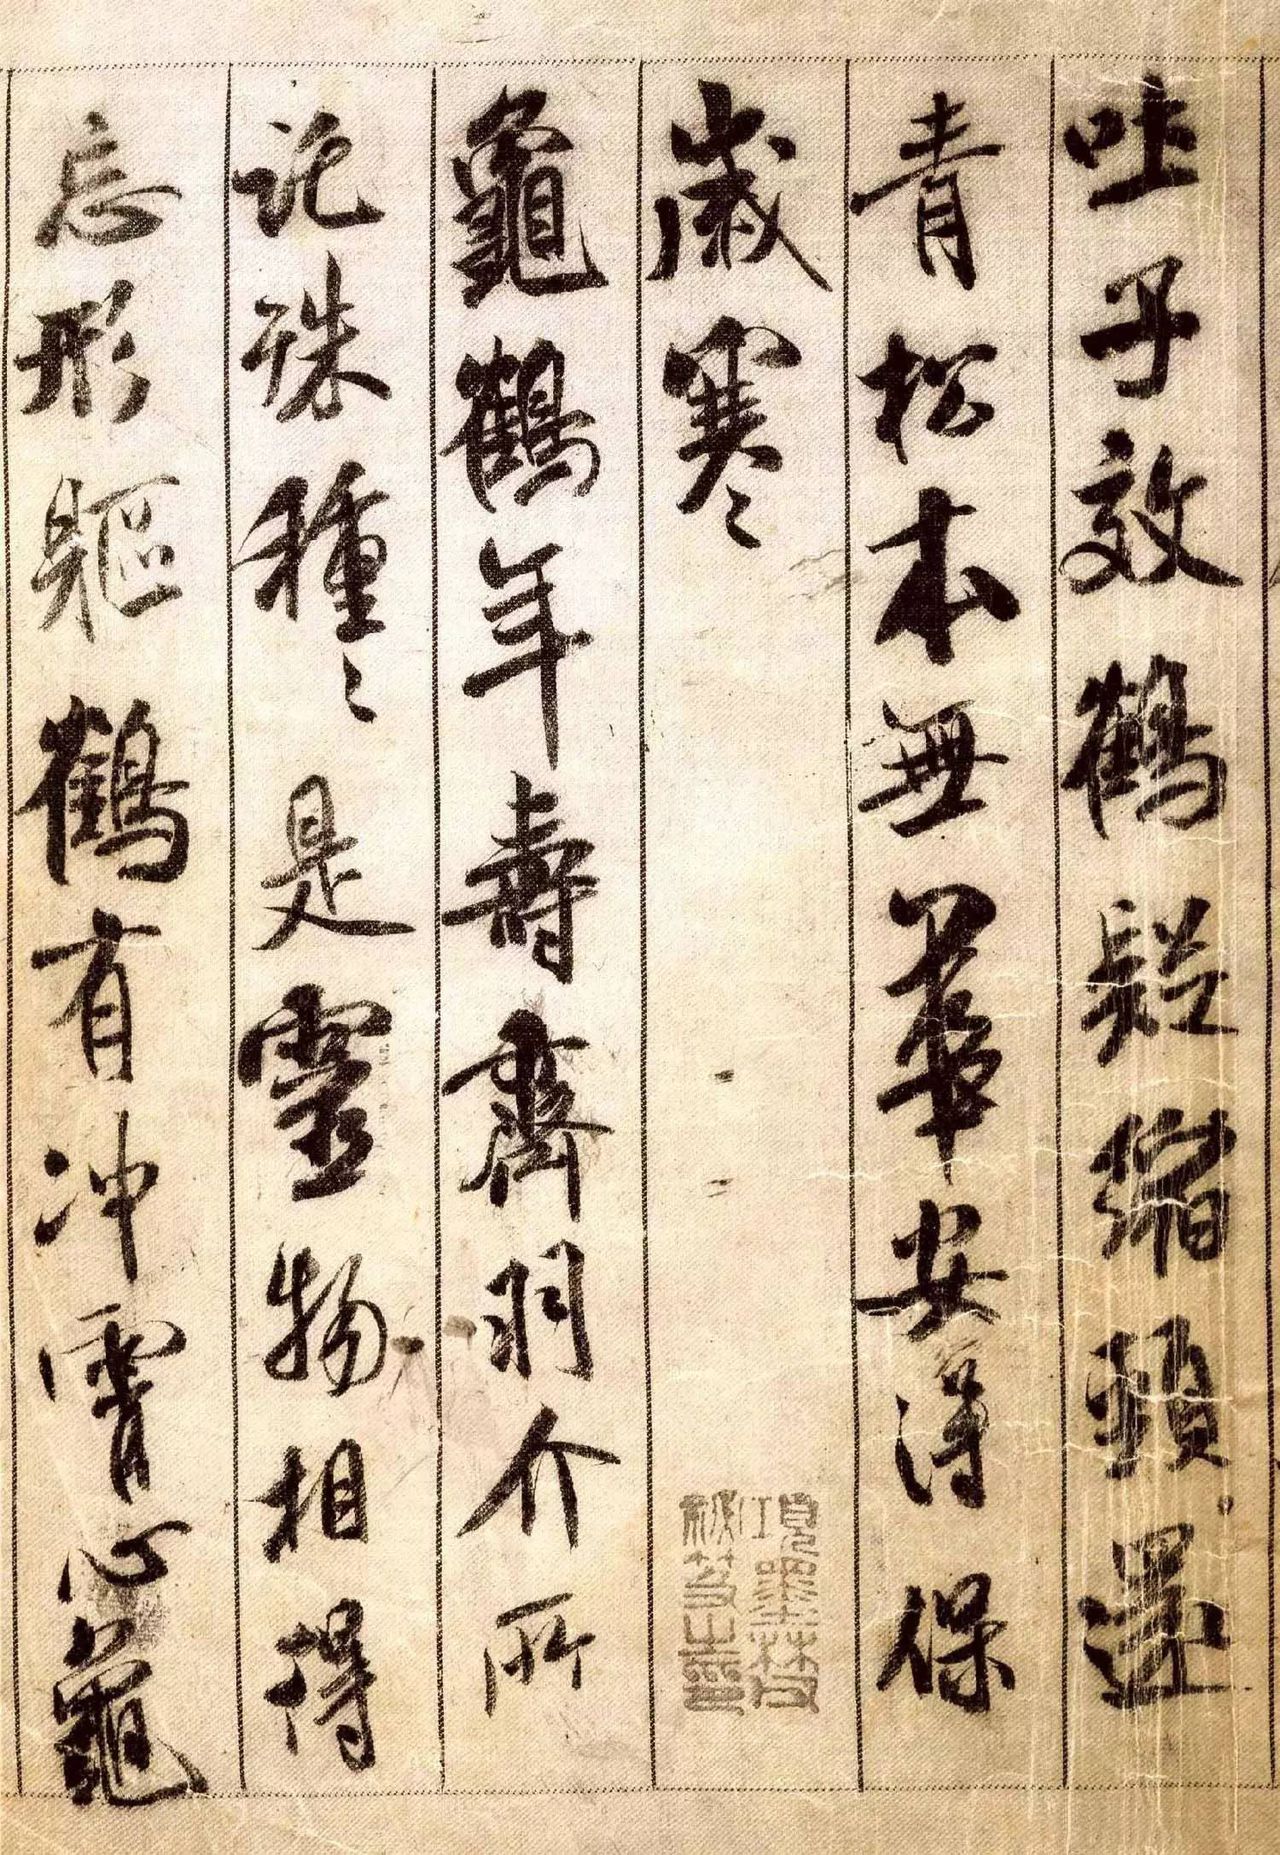 吐子效鶴疑縮頸還
青松本無華安得保
歲寒
龜鶴年壽齊羽介所
託殊種〻是靈物相得
忘形軀鶴有冲霄心龜
項墨林父
祕笈之印